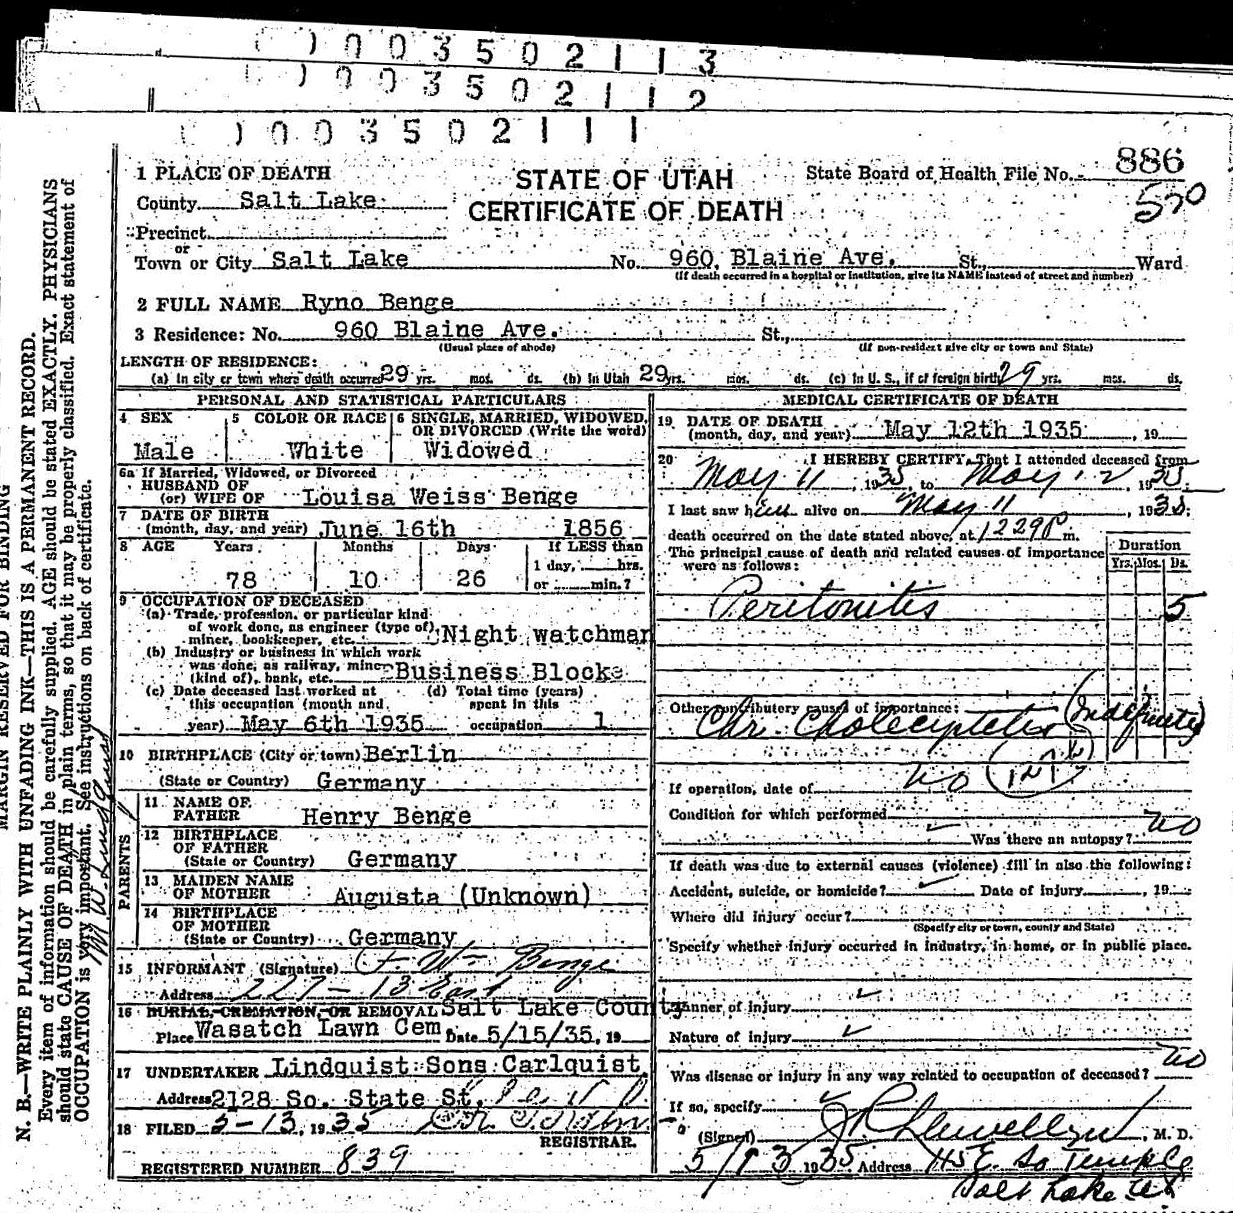 0 0 3 5 0 2 1 1 3
0 0 3 5 0 2 1 1 2
0 0 3 5 0 2 1 1 1
886
570
STATE OF UTAH
CERTIFICATE OF DEATH
State Board of Health File No.
1 PLACE OF DEATH
County Salt Lake
Precinct
or
Town or City Salt Lake No. 960 Blaine Ave. St., Ward
(If death occurred in a hospital or institution, give its NAME instead of street and number)
2 FULL NAME Ryno Benge
3 Residence: No. 960 Blaine Ave. St.,
(Usual place of abode) (If non-resident give city or town and State)
LENGTH OF RESIDENCE:
(a) In city or town where death occurred 29 yrs. mos. ds. (b) In Utah 29 yrs. mos. ds. (c) In U. S., if of foreign birth 29 yrs. mos. ds.
PERSONAL AND STATISTICAL PARTICULARS
4 SEX
Male
5 COLOR OR RACE
White
6 SINGLE, MARRIED, WIDOWED,
OR DIVORCED (Write the word)
Widowed
6a If Married, Widowed, or Divorced
HUSBAND OF
(or) WIFE OF Louisa Weiss Benge
7 DATE OF BIRTH
(month, day, and year) June 16th 1856
8 AGE Years Months Days If LESS than
1 day, hrs.
78 10 26 or min.?
9 OCCUPATION OF DECEASED
(a) Trade, profession, or particular kind
of work done, as engineer (type of)
miner, bookkeeper, etc. Night watchman
(b) Industry or business in which work
was done, as railway, mine
(kind of), bank, etc. Business Blocks
(c) Date deceased last worked at
this occupation (month and
year) May 6th 1935
(d) Total time (years)
spent in this
occupation 1
10 BIRTHPLACE (City or town) Berlin
(State or Country) Germany
PARENTS
11 NAME OF
FATHER Henry Benge
12 BIRTHPLACE
OF FATHER
(State or Country) Germany
13 MAIDEN NAME
OF MOTHER Augusta (Unknown)
14 BIRTHPLACE
OF MOTHER
(State or Country) Germany
15 INFORMANT (Signature) F. Wm Benge
Address 227 - 13 East
16 BURIAL, CREMATION, OR REMOVAL Salt Lake County
Place Wasatch Lawn Cem. Date 5/15/35, 19
17 UNDERTAKER Lindquist Sons Carlquist
Address 2128 So. State St.
18 FILED 5-13, 1935
REGISTRAR.
REGISTERED NUMBER 839
MEDICAL CERTIFICATE OF DEATH
19 DATE OF DEATH
(month, day, and year) May 12th 1935, 19
20 I HEREBY CERTIFY, That I attended deceased from
May 11 1935, to May 12 1935
I last saw him alive on May 11, 1935;
death occurred on the date stated above, at 1229 P m.
The principal cause of death and related causes of importance
were as follows:
Duration
Yrs. Mos. Ds.
Peritonitis 5
Other contributory causes of importance:
Chr. Cholecystitis (Indefinite)
If operation, date of no
Condition for which performed
Was there an autopsy? no
If death was due to external causes (violence) fill in also the following:
Accident, suicide, or homicide? Date of injury, 19
Where did injury occur?
(Specify city or town, county and State)
Specify whether injury occurred in industry, in home, or in public place.
Manner of injury
Nature of injury
Was disease or injury in any way related to occupation of deceased? no
If so, specify
(Signed) Llewellyn, M. D.
5/13 1935 Address 115 E. So Temple
Salt Lake Ut
MARGIN RESERVED FOR BINDING
N. B.—WRITE PLAINLY WITH UNFADING INK—THIS IS A PERMANENT RECORD.
Every item of information should be carefully supplied. AGE should be stated EXACTLY. PHYSICIANS
should state CAUSE OF DEATH in plain terms, so that it may be properly classified. Exact statement of
OCCUPATION is very important. See instructions on back of certificate.